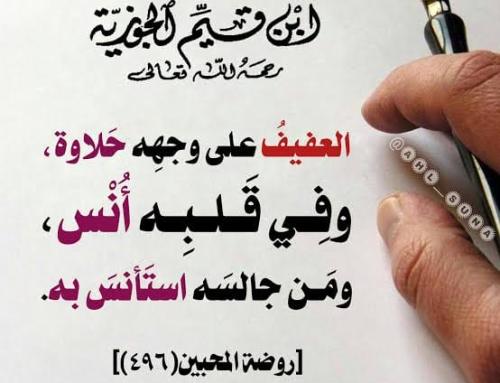 ابن قيم الجوزية
رحمه الله تعالى
العفيفُ على وجهِه حَلاوة،
وفِي قَـلـبِـه أُنْس،
ومَـن جالسَه استَأنسَ به.
[روضة المحبين(٤٩٦)]
@AHL_SUNA